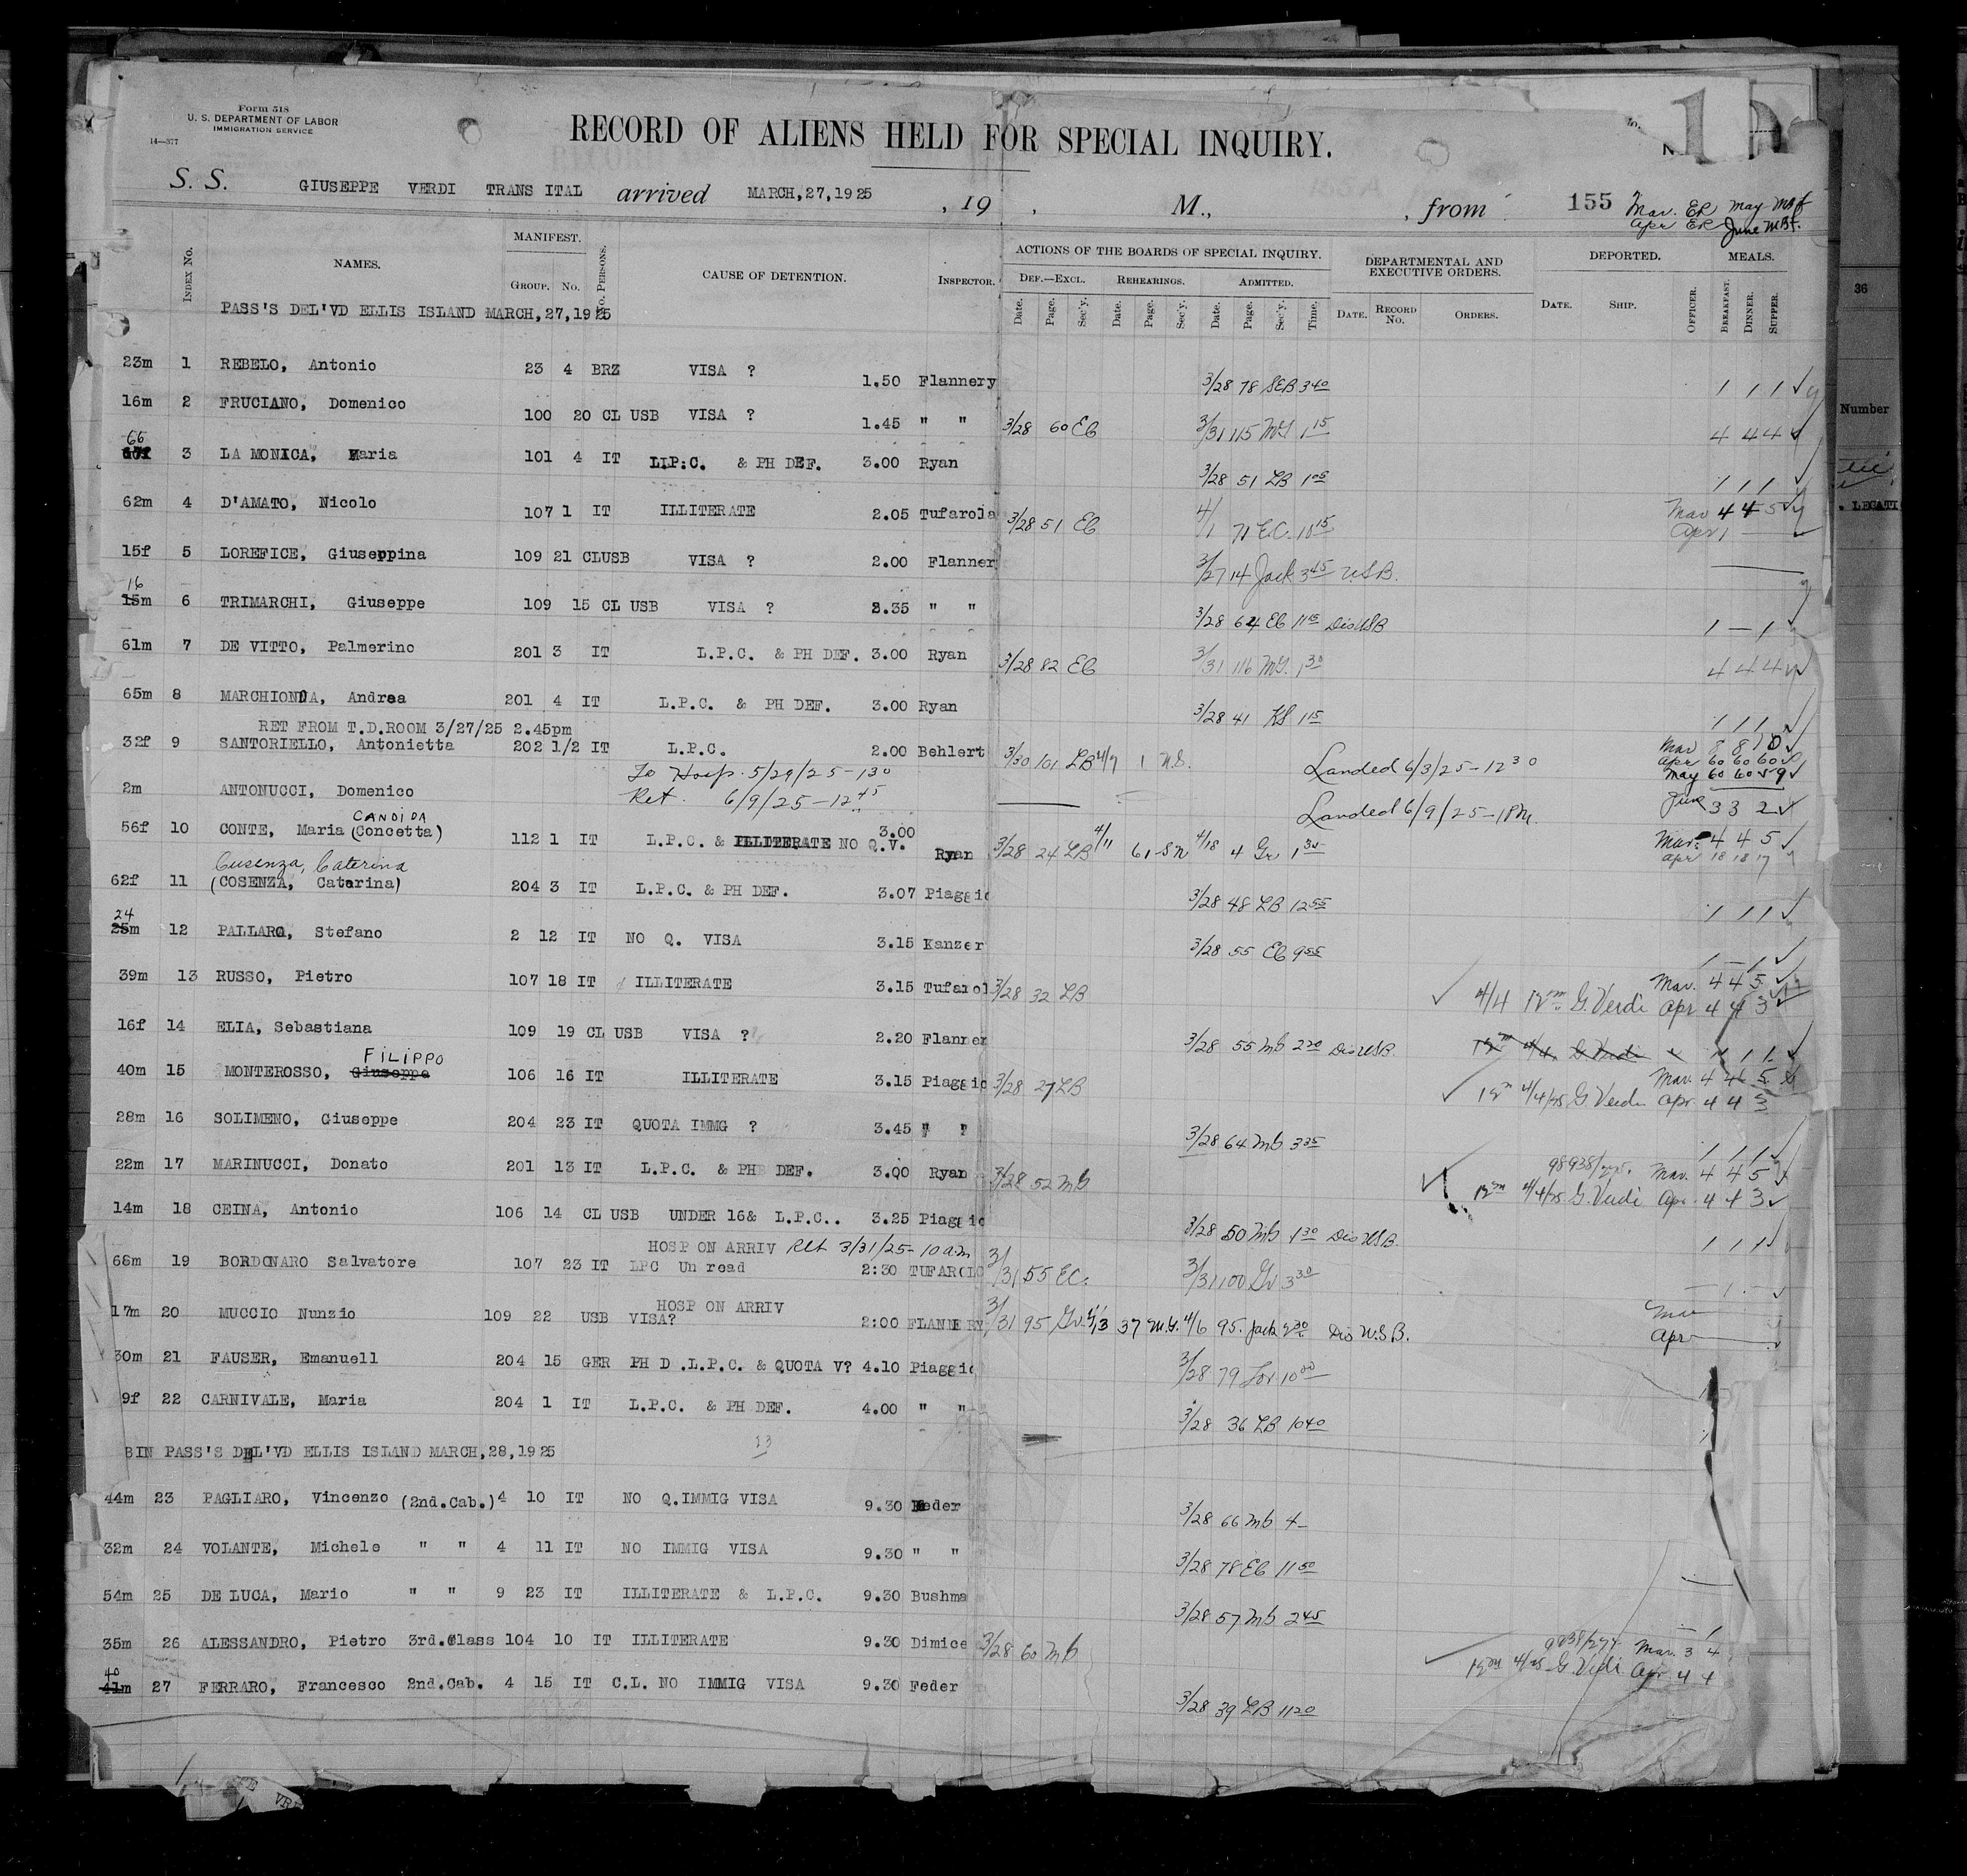 Form 518
U. S. DEPARTMENT OF LABOR
IMMIGRATION SERVICE
14—377
RECORD OF ALIENS HELD FOR SPECIAL INQUIRY.
S. S. GIUSEPPE VERDI TRANS ITAL arrived MARCH,27,1925 , 19 , M., , from 155 Mar. ER May MBF
Apr ER June MBF.
Index No. NAMES. MANIFEST. Group. No. No. Persons. CAUSE OF DETENTION. Inspector. ACTIONS OF THE BOARDS OF SPECIAL INQUIRY. Def.—Excl. Rehearings. Admitted. DEPARTMENTAL AND EXECUTIVE ORDERS. DEPORTED. MEALS.
Date. Page. Sec'y. Date. Page. Sec'y. Date. Page. Sec'y. Time. Date. Record No. Orders. Date. Ship. Officer. Breakfast. Dinner. Supper.
36
Number
PASS'S DEL'VD ELLIS ISLAND MARCH,27,1925
23m 1 REBELO, Antonio 23 4 BRZ VISA ? 1.50 Flannery 3/28 78 SEB 340 1 1 1 ✓
16m 2 FRUCIANO, Domenico 100 20 CL USB VISA ? 1.45 " " 3/28 60 EC 3/31 115 MG 1 15 4 4 4 ✓
66 3 LA MONICA, Maria 101 4 IT L.P.C. & PH DEF. 3.00 Ryan 3/28 51 LB 1 05 1 1 1 ✓
62m 4 D'AMATO, Nicolo 107 1 IT ILLITERATE 2.05 Tufarola 3/28 51 EC 4/1 71 EC 10 15 Mar 4 4 5 ✓
Apr 1 —
15f 5 LOREFICE, Giuseppina 109 21 CLUSB VISA ? 2.00 Flanner 3/27 14 Jack 3 45 USB.
16 15m 6 TRIMARCHI, Giuseppe 109 15 CL USB VISA ? 2.35 " " 3/28 64 EC 11 15 Dis USB 1 — 1
61m 7 DE VITTO, Palmerino 201 3 IT L.P.C. & PH DEF. 3.00 Ryan 3/28 82 EC 3/31 116 MG. 1 30 4 4 4 ✓
65m 8 MARCHIONDA, Andrea 201 4 IT L.P.C. & PH DEF. 3.00 Ryan 3/28 41 KS 1 15 1 1 1 ✓
RET FROM T.D.ROOM 3/27/25 2.45pm
32f 9 SANTORIELLO, Antonietta 202 1/2 IT L.P.C. 2.00 Behlert 3/30 101 LB 4/7 1 N.S. Landed 6/3/25-12 30 Mar 8 8 10 ✓
Apr 60 60 60 ✓
May 60 60 59 ✓
To Hosp. 5/29/25-1 30
2m ANTONUCCI, Domenico Ret. 6/9/25-12 45 Landed 6/9/25-1PM. June 3 3 2 ✓
CANDIDA
56f 10 CONTE, Maria (Concetta) 112 1 IT L.P.C. & ILLITERATE NO Q.V. 3.00 Ryan 3/28 24 LB 4/11 61 SN 4/18 4 Gr 1 35 Mar. 4 4 5 ✓
Apr 18 18 17
Cusenza, Caterina
62f 11 (COSENZA, Catarina) 204 3 IT L.P.C. & PH DEF. 3.07 Piaggio 3/28 48 LB 12 55 1 1 1 ✓
24 25m 12 PALLARA, Stefano 2 12 IT NO Q. VISA 3.15 Kanzer 3/28 55 EC 9 55 1 — 1 ✓
39m 13 RUSSO, Pietro 107 18 IT ILLITERATE 3.15 Tufarol 3/28 32 LB ✓ 4/4 12m G. Verdi Mar. 4 4 5 ✓
Apr 4 4 3 ✓
16f 14 ELIA, Sebastiana 109 19 CL USB VISA ? 2.20 Flanner 3/28 55 Mb 2 20 Dis USB. 12m 4/4 G Verdi 1 1 1 ✓
FILIPPO
40m 15 MONTEROSSO, Giuseppe 106 16 IT ILLITERATE 3.15 Piaggio 3/28 27 LB ✓ 12m 4/4/25 G Verdi Mar. 4 4 5
Apr 4 4 3
28m 16 SOLIMENO, Giuseppe 204 23 IT QUOTA IMMG ? 3.45 " " 3/28 64 Mb 3 35 1 1 1 ✓
22m 17 MARINUCCI, Donato 201 13 IT L.P.C. & PH DEF. 3.00 Ryan 3/28 52 Mb 98938/275. Mar. 4 4 5
12m 4/4/25 G. Verdi Apr. 4 4 3 ✓
14m 18 CEINA, Antonio 106 14 CL USB UNDER 16& L.P.C.. 3.25 Piaggio 3/28 50 Mb 1 30 Dis USB. 1 1 1
HOSP ON ARRIV Ret 3/31/25-10 a.m
68m 19 BORDONARO Salvatore 107 23 IT LPC Un read 2:30 TUFAROLO 3/31 55 EC. 3/31 100 Gr 3 30 — 1 - ✓
HOSP ON ARRIV
17m 20 MUCCIO Nunzio 109 22 USB VISA? 2:00 FLANNERY 3/31 95 Gr. 4/3 37 M.G. 4/6 95. Jack 2 30 Dis U.S.B. Mar
Apr
30m 21 FAUSER, Emanuell 204 15 GER PH D .L.P.C. & QUOTA V? 4.10 Piaggio 3/28 79 Lor 10 00
9f 22 CARNIVALE, Maria 204 1 IT L.P.C. & PH DEF. 4.00 " " 3/28 36 LB 10 40
BIN PASS'S DEL'VD ELLIS ISLAND MARCH,28,1925 13
44m 23 PAGLIARO, Vincenzo (2nd.Cab.) 4 10 IT NO Q.IMMIG VISA 9.30 Feder 3/28 66 Mb 4-
32m 24 VOLANTE, Michele " " 4 11 IT NO IMMIG VISA 9.30 " " 3/28 78 EC 11 50
54m 25 DE LUCA, Mario " " 9 23 IT ILLITERATE & L.P.C. 9.30 Bushma 3/28 57 Mb 2 45
35m 26 ALESSANDRO, Pietro 3rd.Class 104 10 IT ILLITERATE 9.30 Dimice 3/28 60 Mb ✓ Mar. 3 4
G Verdi Apr. 4 4
40 41m 27 FERRARO, Francesco 2nd.Cab. 4 15 IT C.L. NO IMMIG VISA 9.30 Feder 3/28 39 LB 11 20